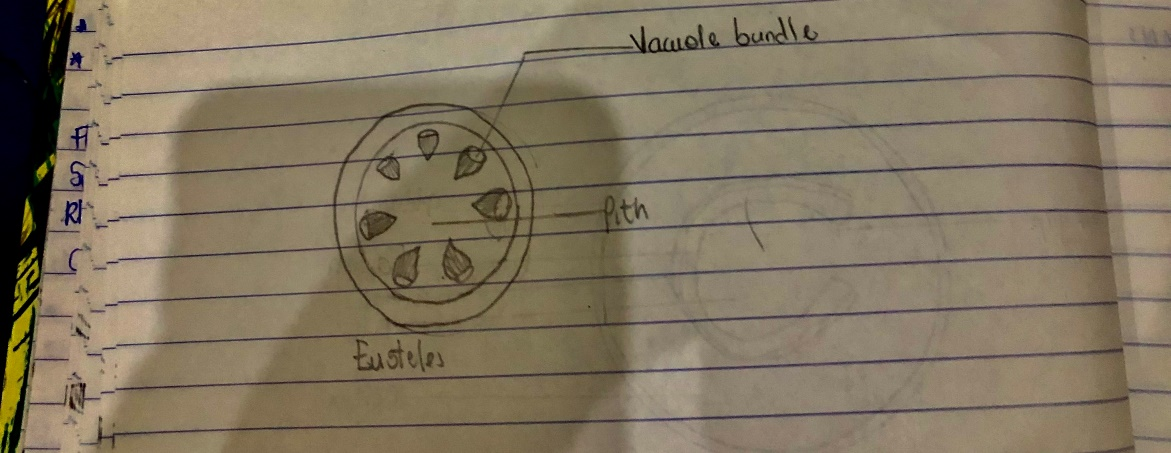 Vacuole bundle
Pith
Eusteles